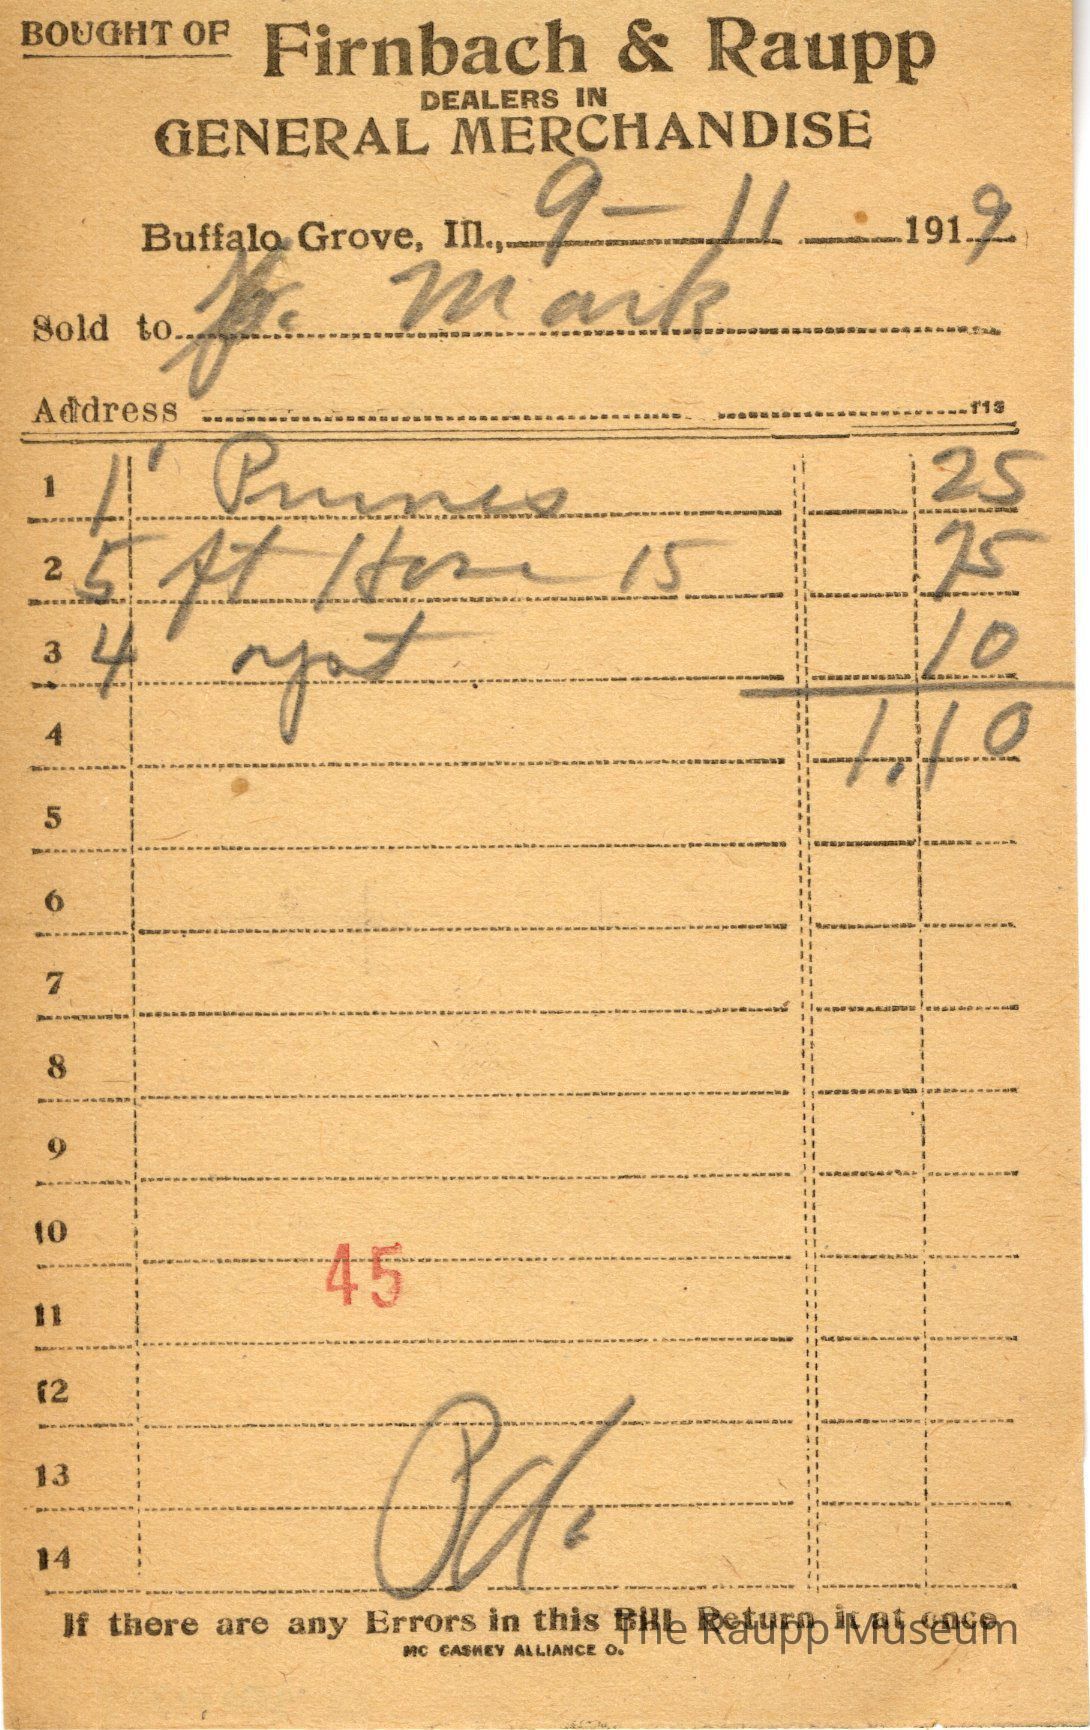 BOUGHT OF Firnbach & Raupp
DEALERS IN
GENERAL MERCHANDISE
Buffalo Grove, Ill., 9 - 11 1919
Sold to Mark
Address 113
1 1 Prunes 25
2 5 ft Hose 15 75
3 4 10
4 1.10
5
6
7
8
9
10
45
11
12
13
Pd.
14
If there are any Errors in this Bill Return it at once
The Raupp Museum
MC CASKEY ALLIANCE O.